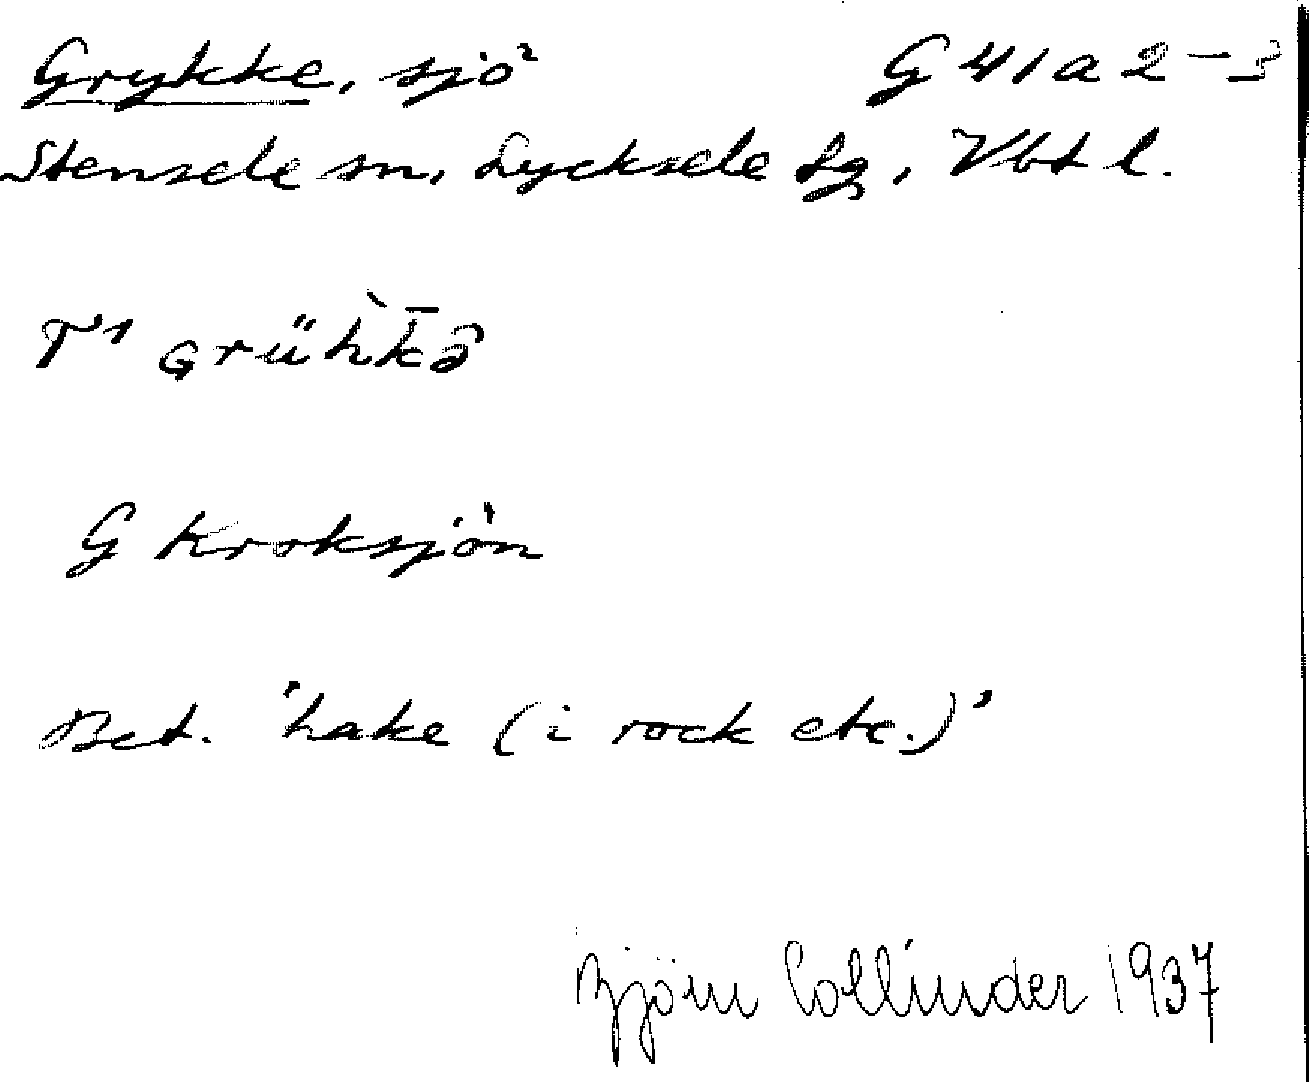 Grykke, sjö G 41 a 2-3
Stensele sn, Lycksele lg, Vbt l.
T¹ ɢrüh̀k̄ā̂
G Kroksjön
Bet. 'hake (i rock etc.)'
Björn Collinder 1937